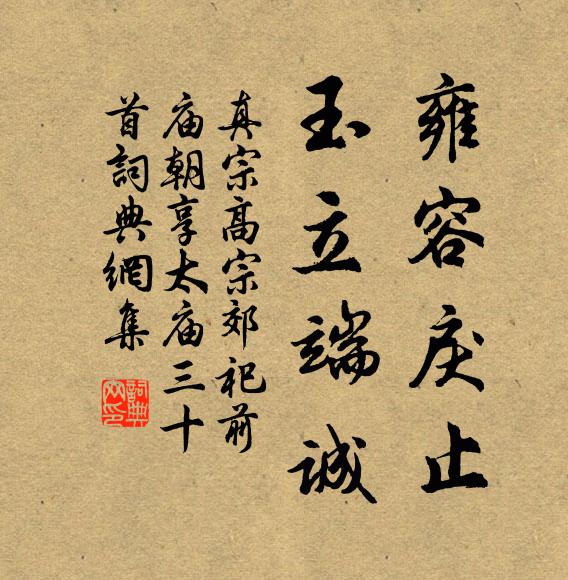 雍容戾止
玉立端誠
真宗高宗郊祀前
庙朝享太庙三十
首詞典網集
詞典网印